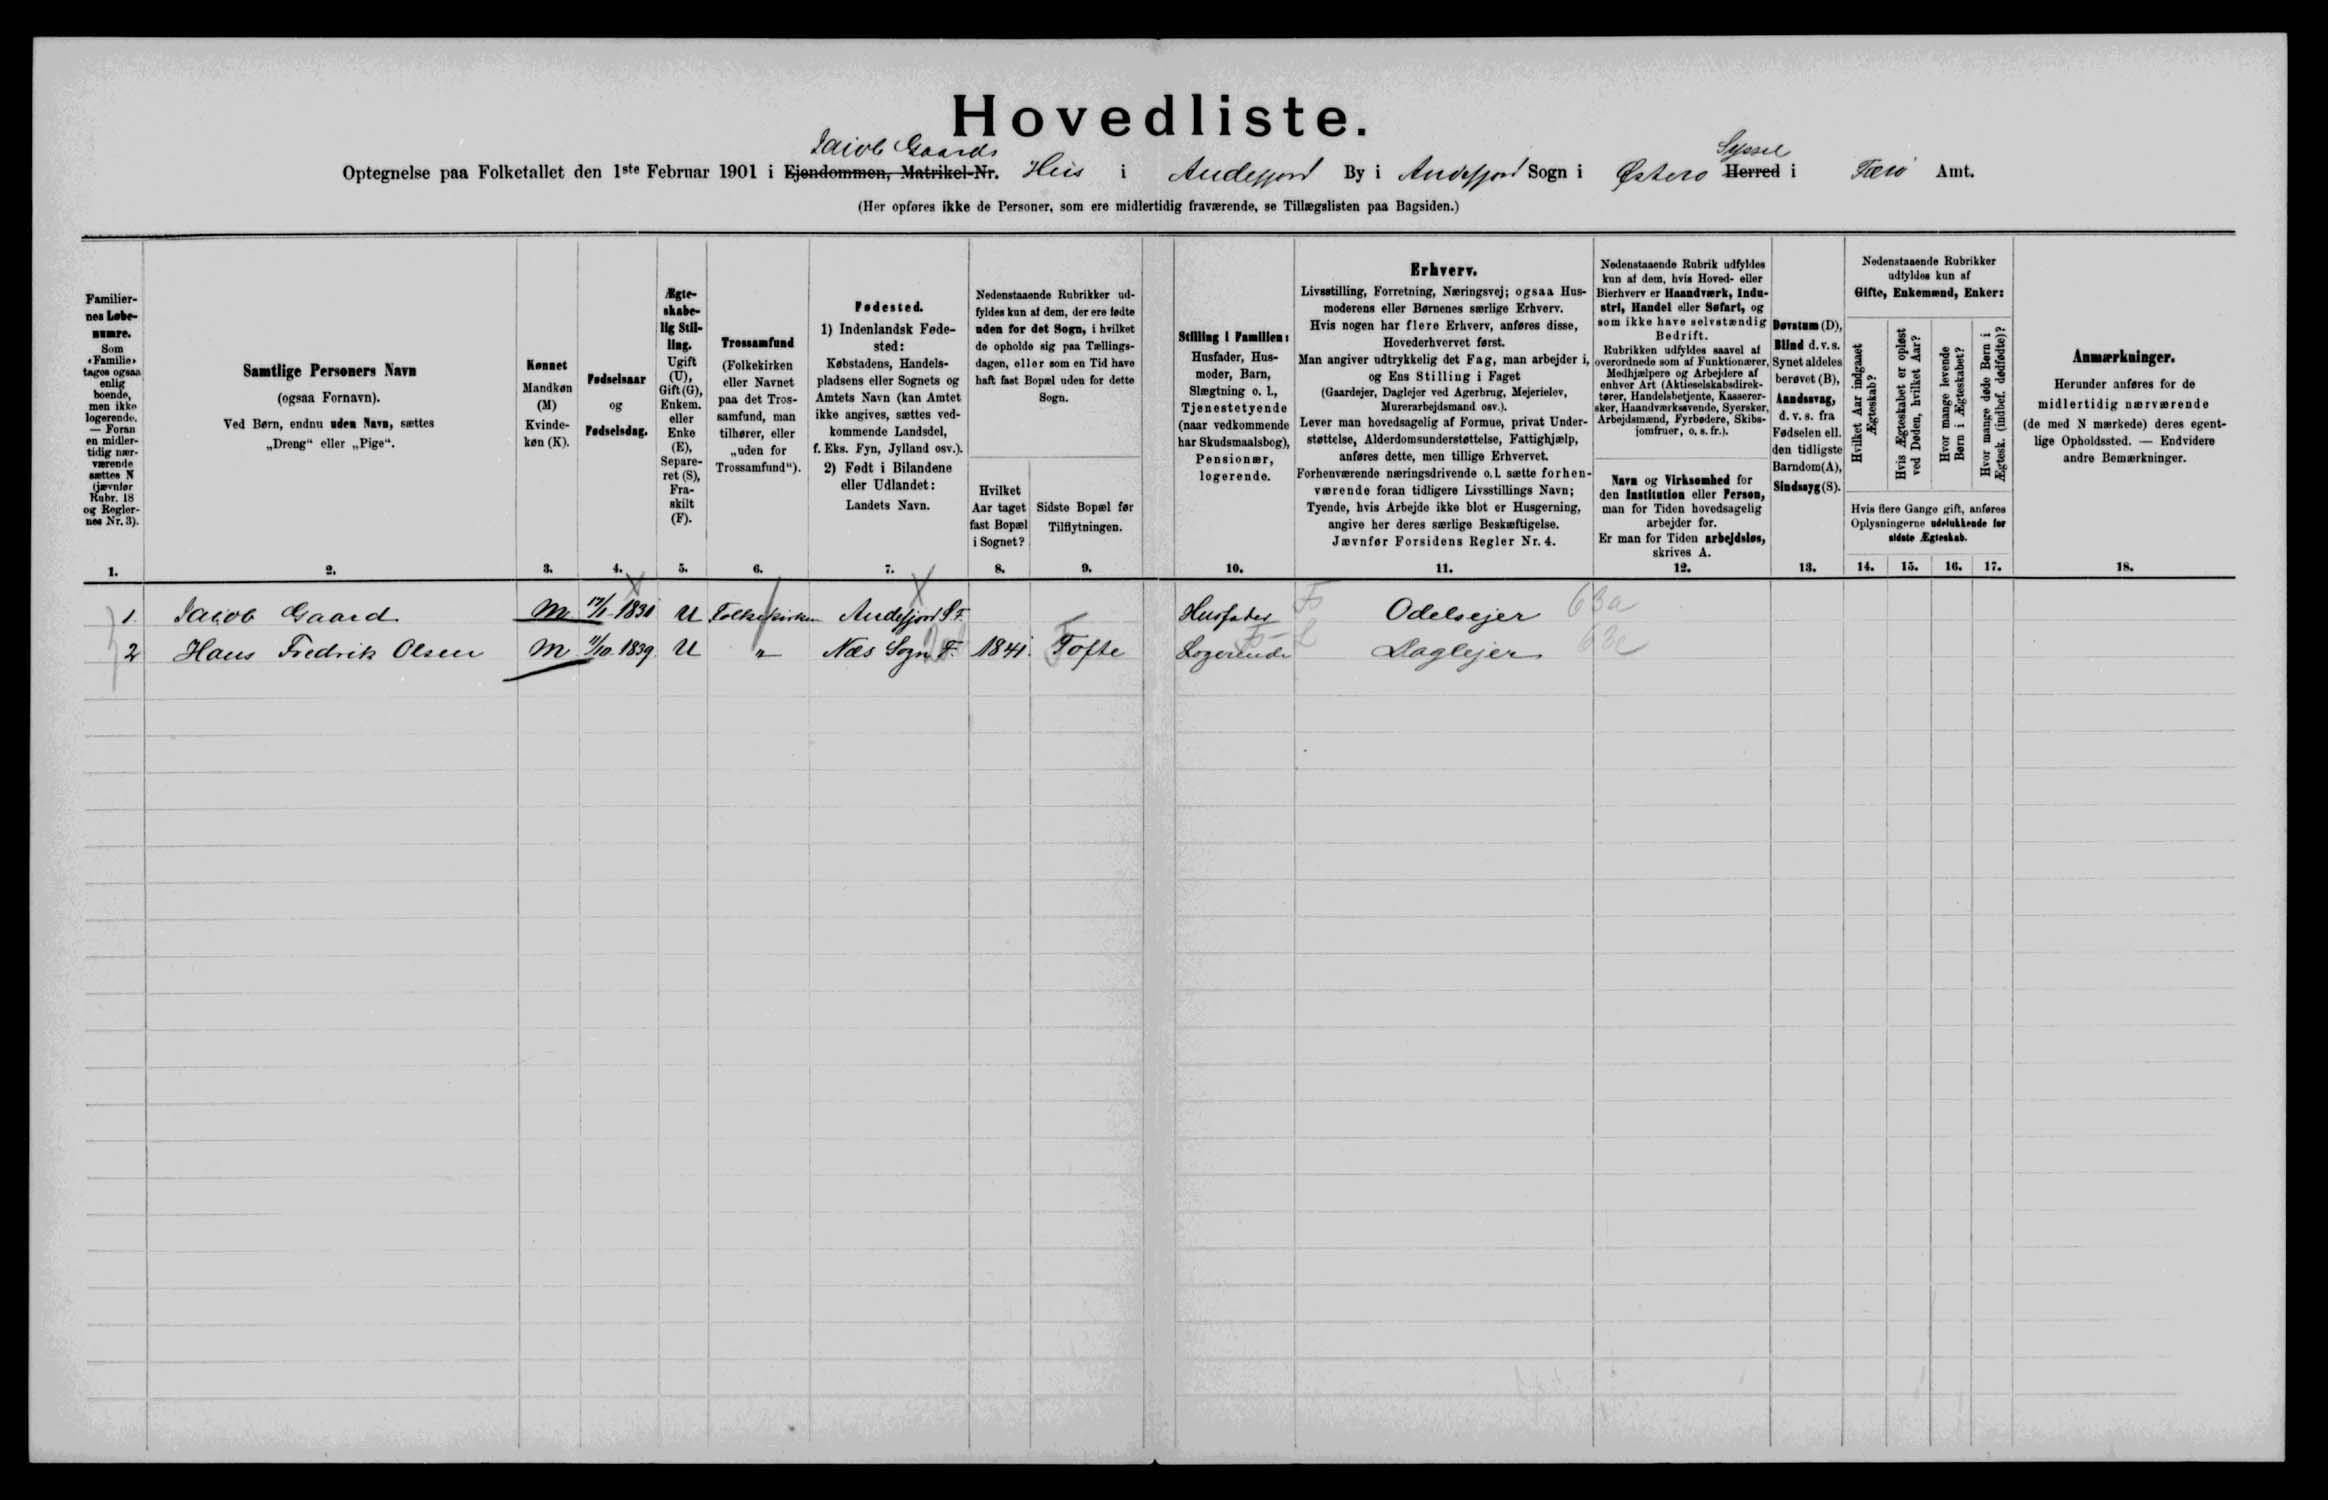 Hovedliste.
Jacob Gaards
Syssel
Optegnelse paa Folketallet den 1ste Februar 1901 i Ejendommen, Matrikel-Nr. Hus i Andefjord By i Andefjord Sogn i Østerø Herred i Færø Amt.
(Her opføres ikke de Personer, som ere midlertidig fraværende, se Tillægslisten paa Bagsiden.)
Familier-
nes Løbe-
numre.
Som
«Familie»
tages ogsaa
enlig
boende,
men ikke
logerende.
— Foran
en midler-
tidig nær-
værende
sættes N
(jævnfør
Rubr. 18
og Regler-
nes Nr. 3).
Samtlige Personers Navn
(ogsaa Fornavn).
Ved Børn, endnu uden Navn, sættes
„Dreng“ eller „Pige“.
Kønnet
Mandkøn
(M)
Kvinde-
køn (K).
Fødselsaar
og
Fødselsdag.
Ægte-
skabe-
lig Stil-
ling.
Ugift
(U),
Gift (G),
Enkem.
eller
Enke
(E),
Separe-
ret (S),
Fra-
skilt
(F).
Trossamfund
(Folkekirken
eller Navnet
paa det Tros-
samfund, man
tilhører, eller
„uden for
Trossamfund“).
Fødested.
1) Indenlandsk Føde-
sted:
Købstadens, Handels-
pladsens eller Sognets og
Amtets Navn (kan Amtet
ikke angives, sættes ved-
kommende Landsdel,
f. Eks. Fyn, Jylland osv.).
2) Født i Bilandene
eller Udlandet:
Landets Navn.
Nedenstaaende Rubrikker ud-
fyldes kun af dem, der ere fødte
uden for det Sogn, i hvilket
de opholde sig paa Tællings-
dagen, eller som en Tid have
haft fast Bopæl uden for dette
Sogn.
Hvilket
Aar taget
fast Bopæl
i Sognet?
Sidste Bopæl før
Tilflytningen.
Stilling i Familien:
Husfader, Hus-
moder, Barn,
Slægtning o. l.,
Tjenestetyende
(naar vedkommende
har Skudsmaalsbog),
Pensionær,
logerende.
Erhverv.
Livsstilling, Forretning, Næringsvej; ogsaa Hus-
moderens eller Børnenes særlige Erhverv.
Hvis nogen har flere Erhverv, anføres disse,
Hovederhvervet først.
Man angiver udtrykkelig det Fag, man arbejder i,
og Ens Stilling i Faget
(Gaardejer, Daglejer ved Agerbrug, Mejerielev,
Murerarbejdsmand osv.).
Lever man hovedsagelig af Formue, privat Under-
støttelse, Alderdomsunderstøttelse, Fattighjælp,
anføres dette, men tillige Erhvervet.
Forhenværende næringsdrivende o. l. sætte forhen-
værende foran tidligere Livsstillings Navn;
Tyende, hvis Arbejde ikke blot er Husgerning,
angive her deres særlige Beskæftigelse.
Jævnfør Forsidens Regler Nr. 4.
Nedenstaaende Rubrik udfyldes
kun af dem, hvis Hoved- eller
Bierhverv er Haandværk, Indu-
stri, Handel eller Søfart, og
som ikke have selvstændig
Bedrift.
Rubrikken udfyldes saavel af
overordnede som af Funktionærer,
Medhjælpere og Arbejdere af
enhver Art (Aktieselskabsdirek-
tører, Handelsbetjente, Kasserer-
sker, Haandværkssvende, Syersker,
Arbejdsmænd, Fyrbødere, Skibs-
jomfruer, o. s. fr.).
Navn og Virksomhed for
den Institution eller Person,
man for Tiden hovedsagelig
arbejder for.
Er man for Tiden arbejdsløs,
skrives A.
Døvstum (D),
Blind d. v. s.
Synet aldeles
berøvet (B),
Aandssvag,
d. v. s. fra
Fødselen ell.
den tidligste
Barndom (A),
Sindssyg (S).
Nedenstaaende Rubrikker
udfyldes kun af
Gifte, Enkemænd, Enker:
Hvilket Aar indgaaet
Ægteskab?
Hvis Ægteskabet er opløst
ved Døden, hvilket Aar?
Hvor mange levende
Børn i Ægteskabet?
Hvor mange døde Børn i
Ægtesk. (indbef. dødfødte)?
Hvis flere Gange gift, anføres
Oplysningerne udelukkende for
sidste Ægteskab.
Anmærkninger.
Herunder anføres for de
midlertidig nærværende
(de med N mærkede) deres egent-
lige Opholdssted. — Endvidere
andre Bemærkninger.
1. 2. 3. 4. 5. 6. 7. 8. 9. 10. 11. 12. 13. 14. 15. 16. 17. 18.
1. Jacob Gaard M 1831 U Folkekirken Andefjord S. F. Husfader F Odelsejer 63a
2 Hans Fredrik Olsen M 11/10 1839 U " Næs Sogn F. 1841. Tofte Logerende L Daglejer 63c